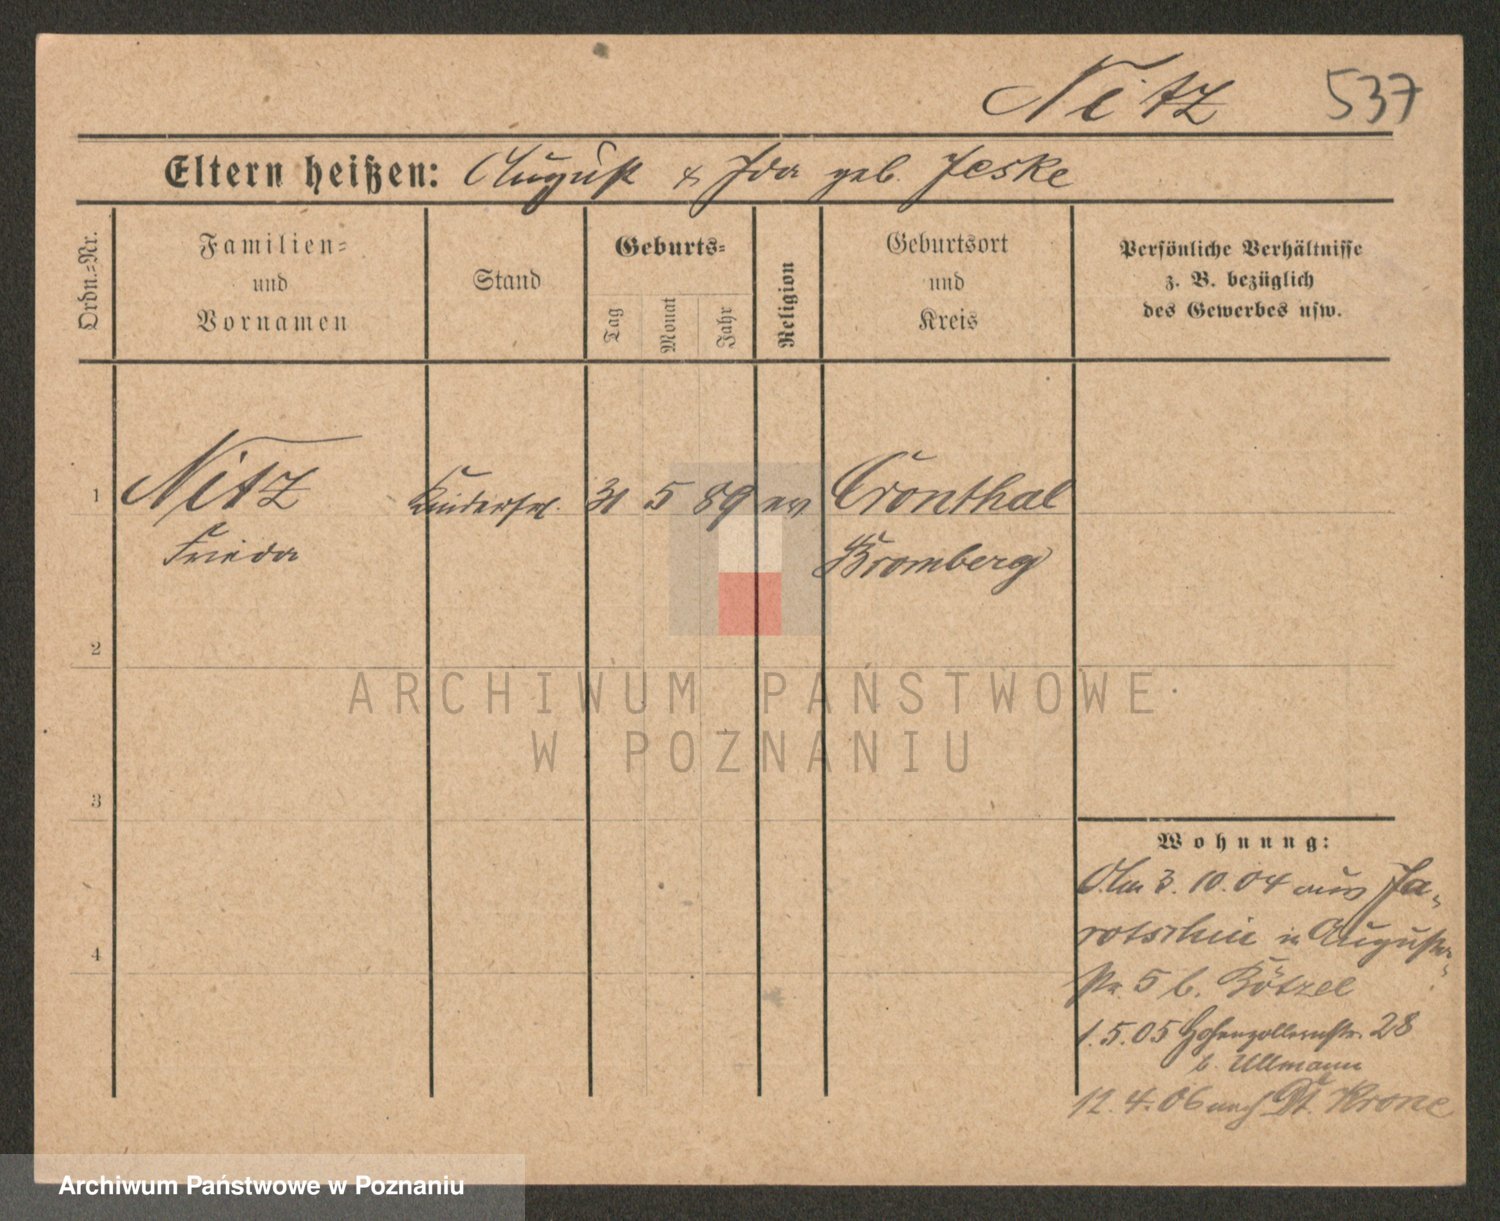 Nitz 537
Eltern heißen: August & Ida geb. Jeske
Ordn.=Nr.
Familien=
und
Vornamen
Stand
Geburts=
Tag
Monat
Jahr
Religion
Geburtsort
und
Kreis
Persönliche Verhältnisse
z. B. bezüglich
des Gewerbes usw.
1 Nitz Kinderfrl. 31 5 89 ev Cronthal
Frieda Bromberg
2
3
4
Wohnung:
Am 3.10.04 aus Ja-
rotschin in Augusta-
str. 5 b. Kötzel
1.5.05 Hohenzollernstr. 28
b. Ullmann
12.4.06 nach Dt. Krone
ARCHIWUM PAŃSTWOWE
W POZNANIU
Archiwum Państwowe w Poznaniu